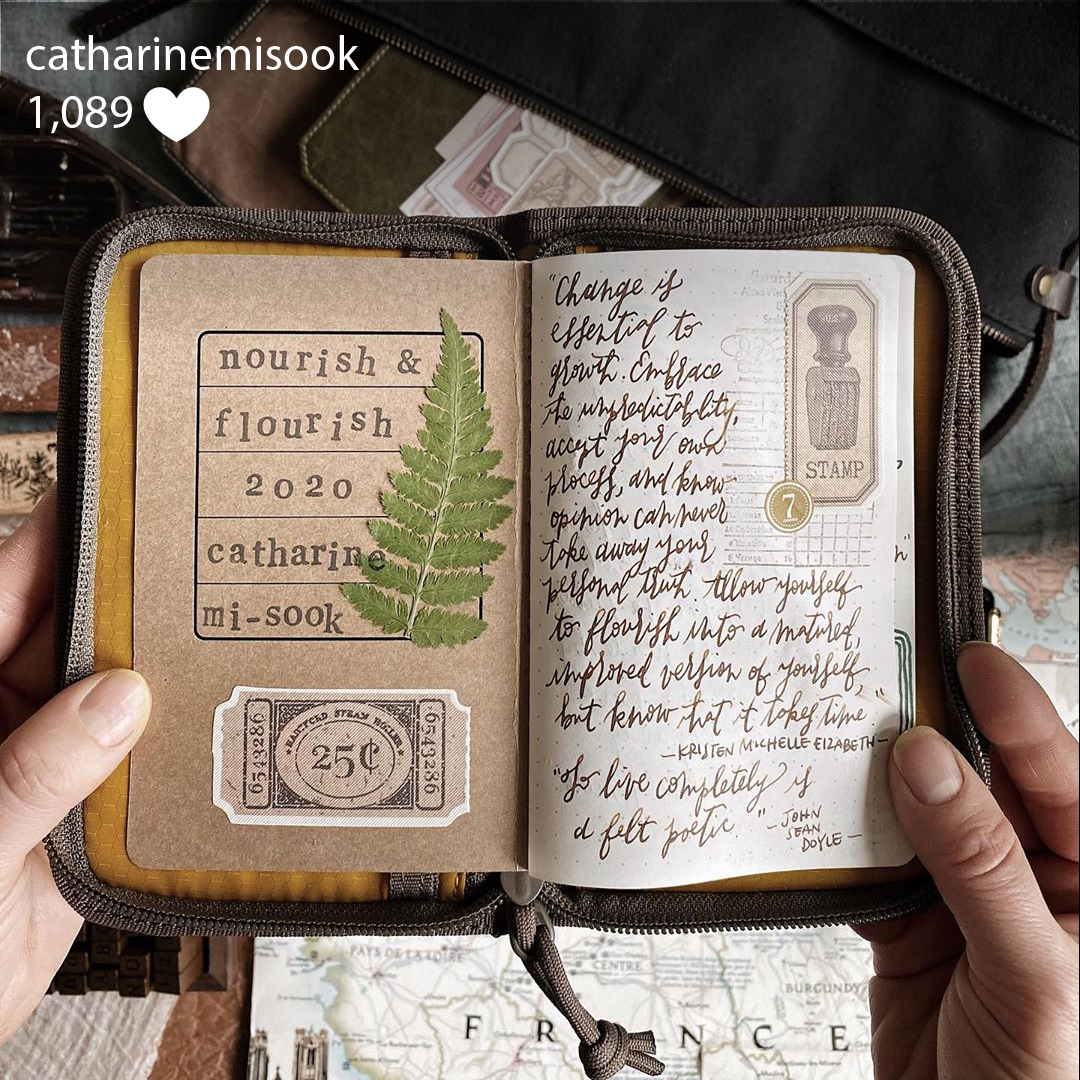 catharinemisook
1,089
nourish &
flourish
2020
catharine
mi-sook
HARTFORD STEAM
25¢
6543286
6543286
"Change is
essential to
growth. Embrace
the unpredictability,
accept your own
process, and know
opinion can never
take away your
personal truth. Allow yourself
to flourish into a matured,
improved version of yourself,
but know that it takes time."
—KRISTEN MICHELLE ElZABETH—
"To live completely is
a felt poetic." —JOHN
SEAN
DOYLE—
U.S.
STAMP
7
PAYS DE LA LOIRE
CENTRE
BURGUNDY
FRANCE